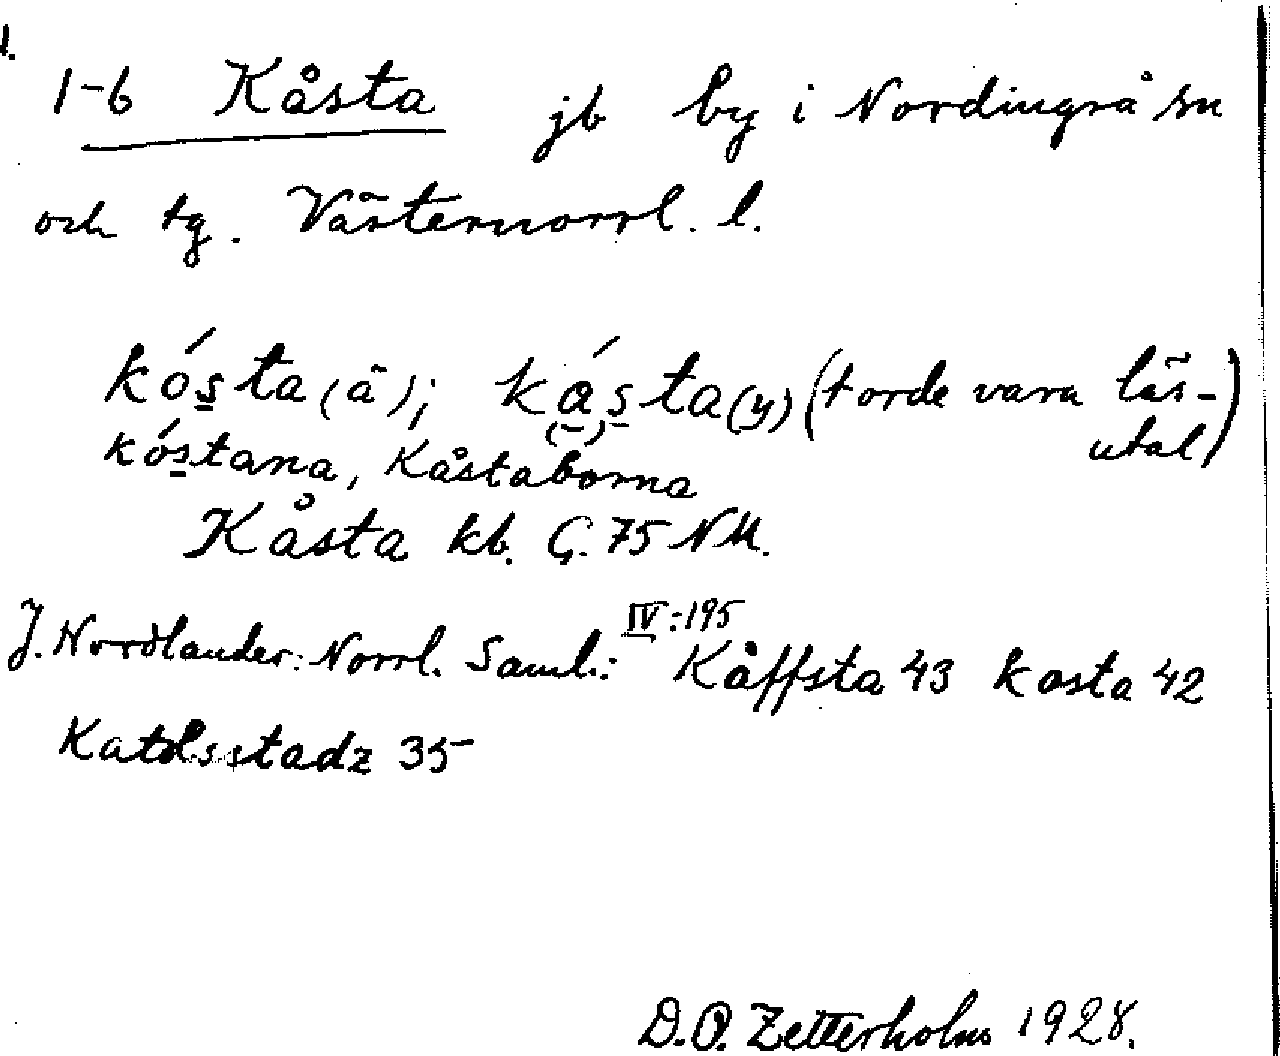 1-6 Kåsta jb by i Nordingrå sn
och tg. Västernorrl. l.
kósta (ä); kásta (y) (torde vara läs-
utal)
kóstana, Kåstaborna
Kåsta kb. G. 75 NM.
J. Nordlander: Norrl. Saml.: IV:195 Kåffsta 43 kasta 42
Katolsstadz 35
D.O. Zetterholm 1928.